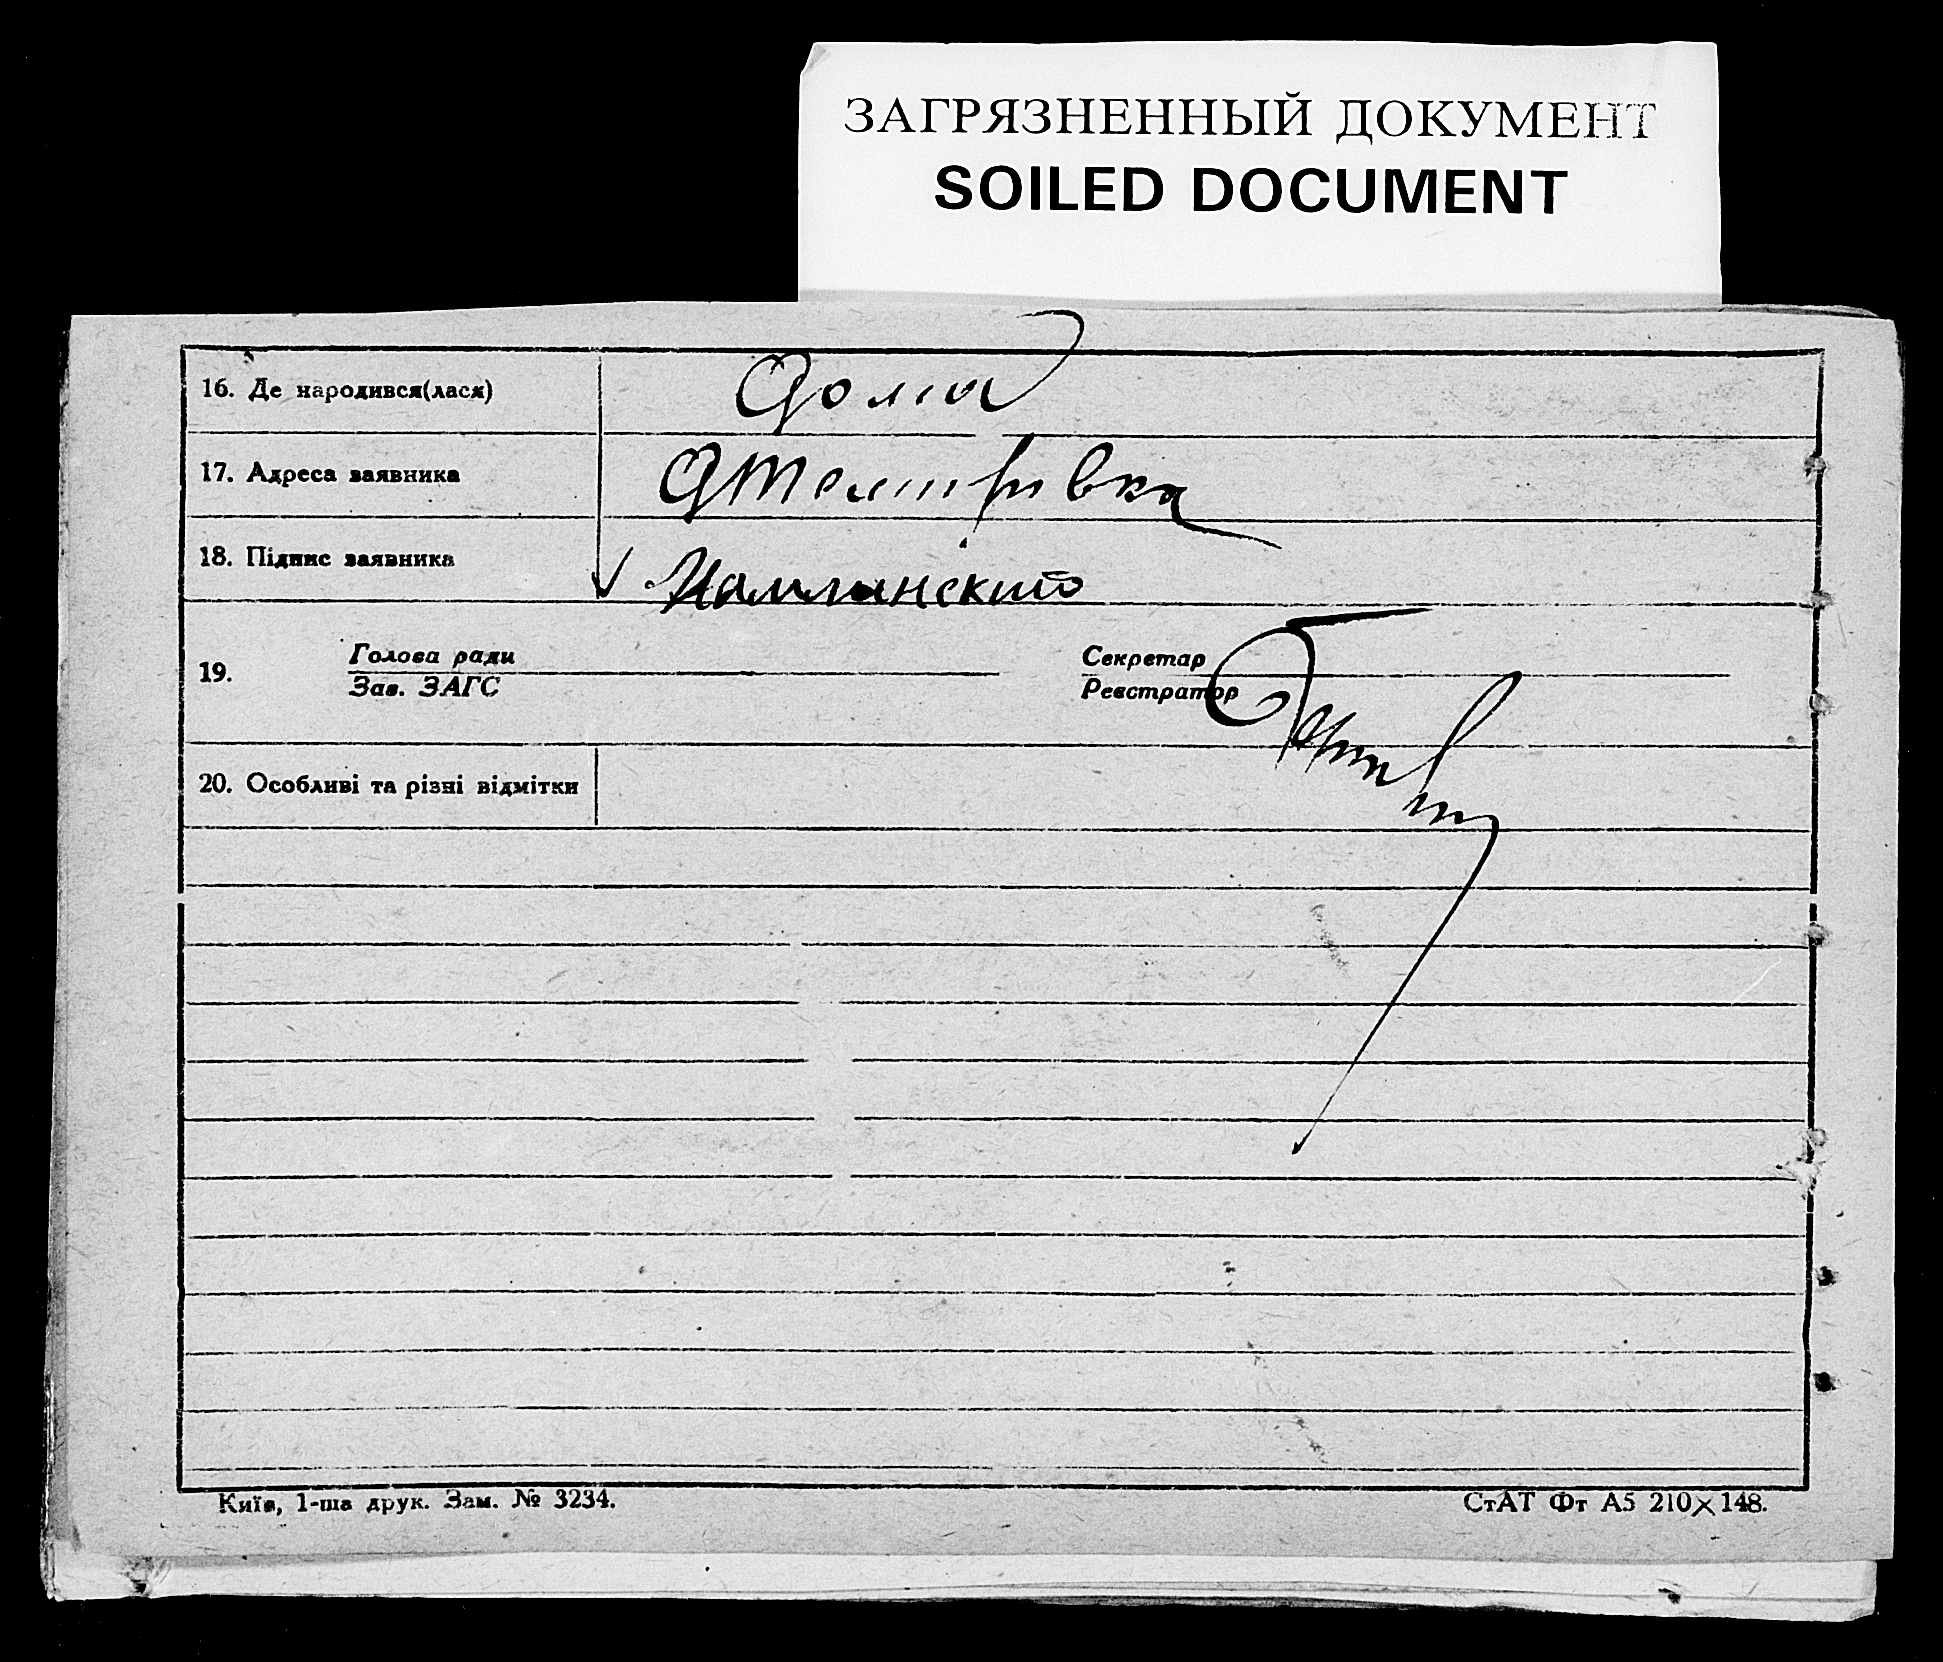 ЗАГРЯЗНЕННЫЙ ДОКУМЕНТ
SOILED DOCUMENT
16. Де народився(лася) Дома
17. Адреса заявника
18. Підпис заявника
19. Голова ради
Зав. ЗАГС
Секретар
Реєстратор
20. Особливі та різні відмітки
Київ, 1-ша друк. Зам. № 3234.
СтАТ Фт А5 210×148.